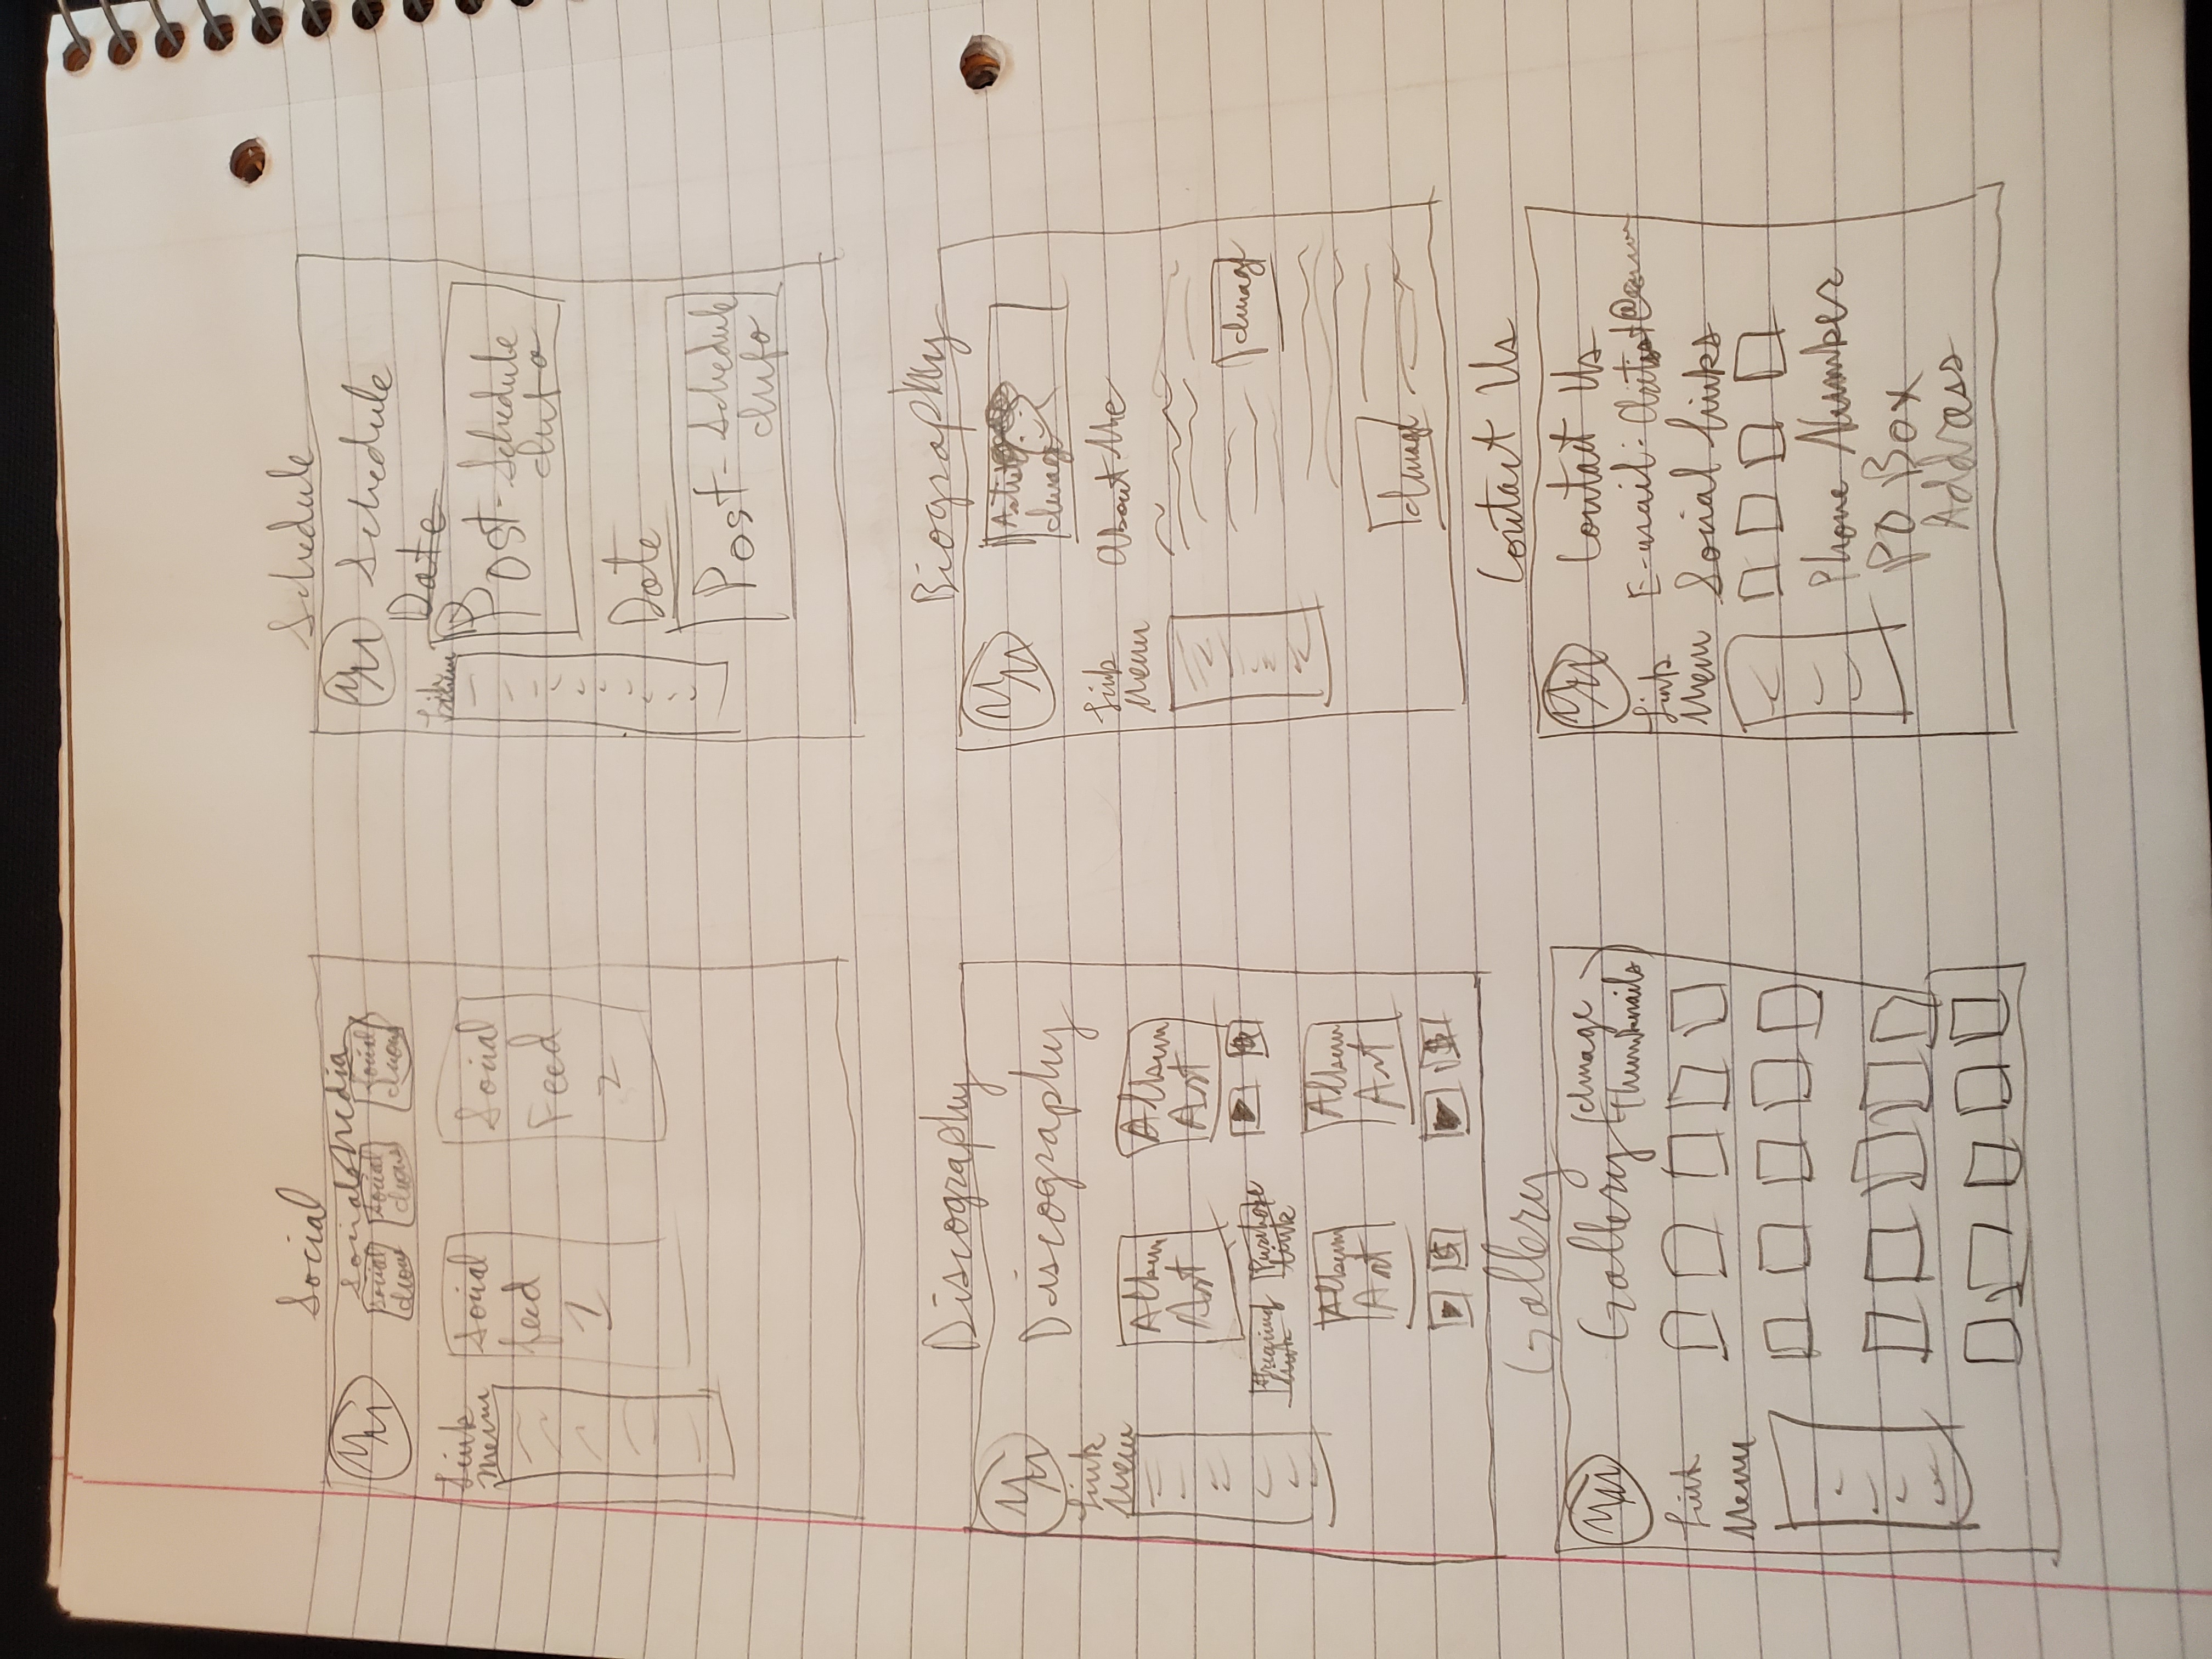 Social
Social Media
Social
Icons
Social
Icons
Social
Icons
Link
Menu
Social
feed
1
Social
Feed
2
Schedule
Schedule
Date
Post - Schedule
Info
Date
Post - Schedule
Info
Discography
Discography
Link
Menu
Album
Art
Album
Art
Link
Purchase
Link
Album
Art
$
Album
Art
$
Biography
Artist
Image
Link
Menu
About Me
Image
Image
Gallery
Gallery (Image
Thumbnails)
Link
Menu
Contact Us
Contact Us
E-mail: Artist@
Link
Menu
Social Links
Phone Number
PO Box
Address